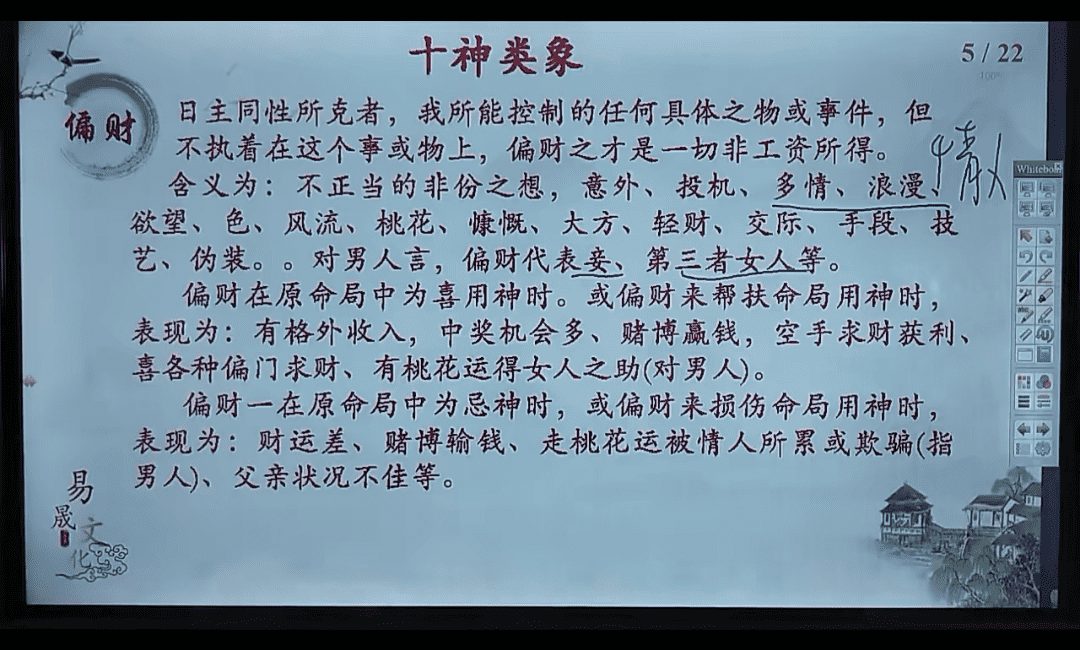 十神类象
5 / 22
100%
偏财
日主同性所克者，我所能控制的任何具体之物或事件，但
不执着在这个事或物上，偏财之才是一切非工资所得。
情人
含义为：不正当的非份之想，意外、投机、多情、浪漫、
欲望、色、风流、桃花、慷慨、大方、轻财、交际、手段、技
艺、伪装。。对男人言，偏财代表妾、第三者女人等。
偏财在原命局中为喜用神时。或偏财来帮扶命局用神时，
表现为：有格外收入，中奖机会多、赌博赢钱，空手求财获利、
喜各种偏门求财、有桃花运得女人之助(对男人)。
偏财一在原命局中为忌神时，或偏财来损伤命局用神时，
表现为：财运差、赌博输钱、走桃花运被情人所累或欺骗(指
男人)、父亲状况不佳等。
易
晟
文
化